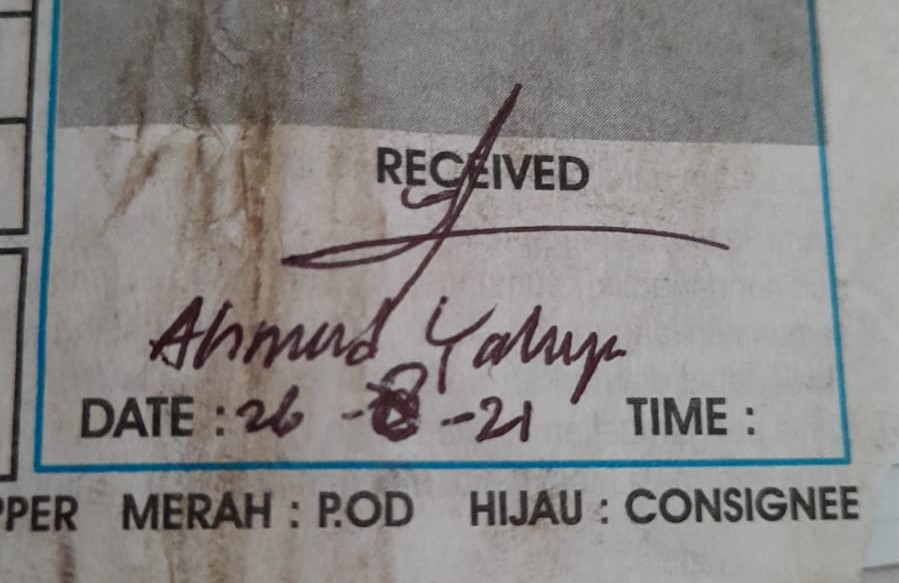 RECEIVED
Ahmad Yahya
DATE : 26 -8 -21 TIME :
PPER MERAH : P.OD HIJAU : CONSIGNEE